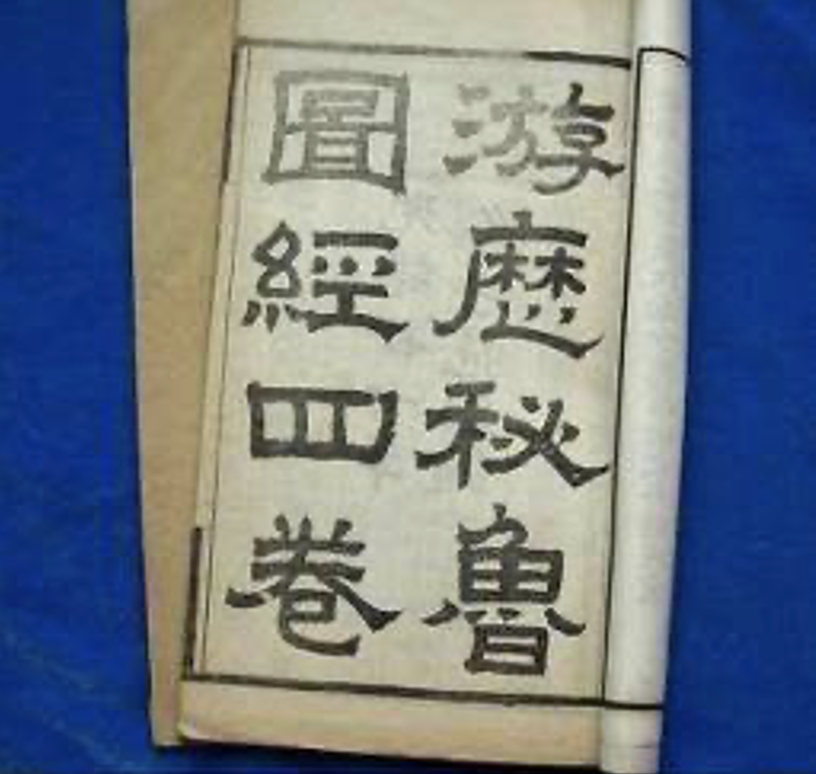 游歷秘魯
圖經四卷